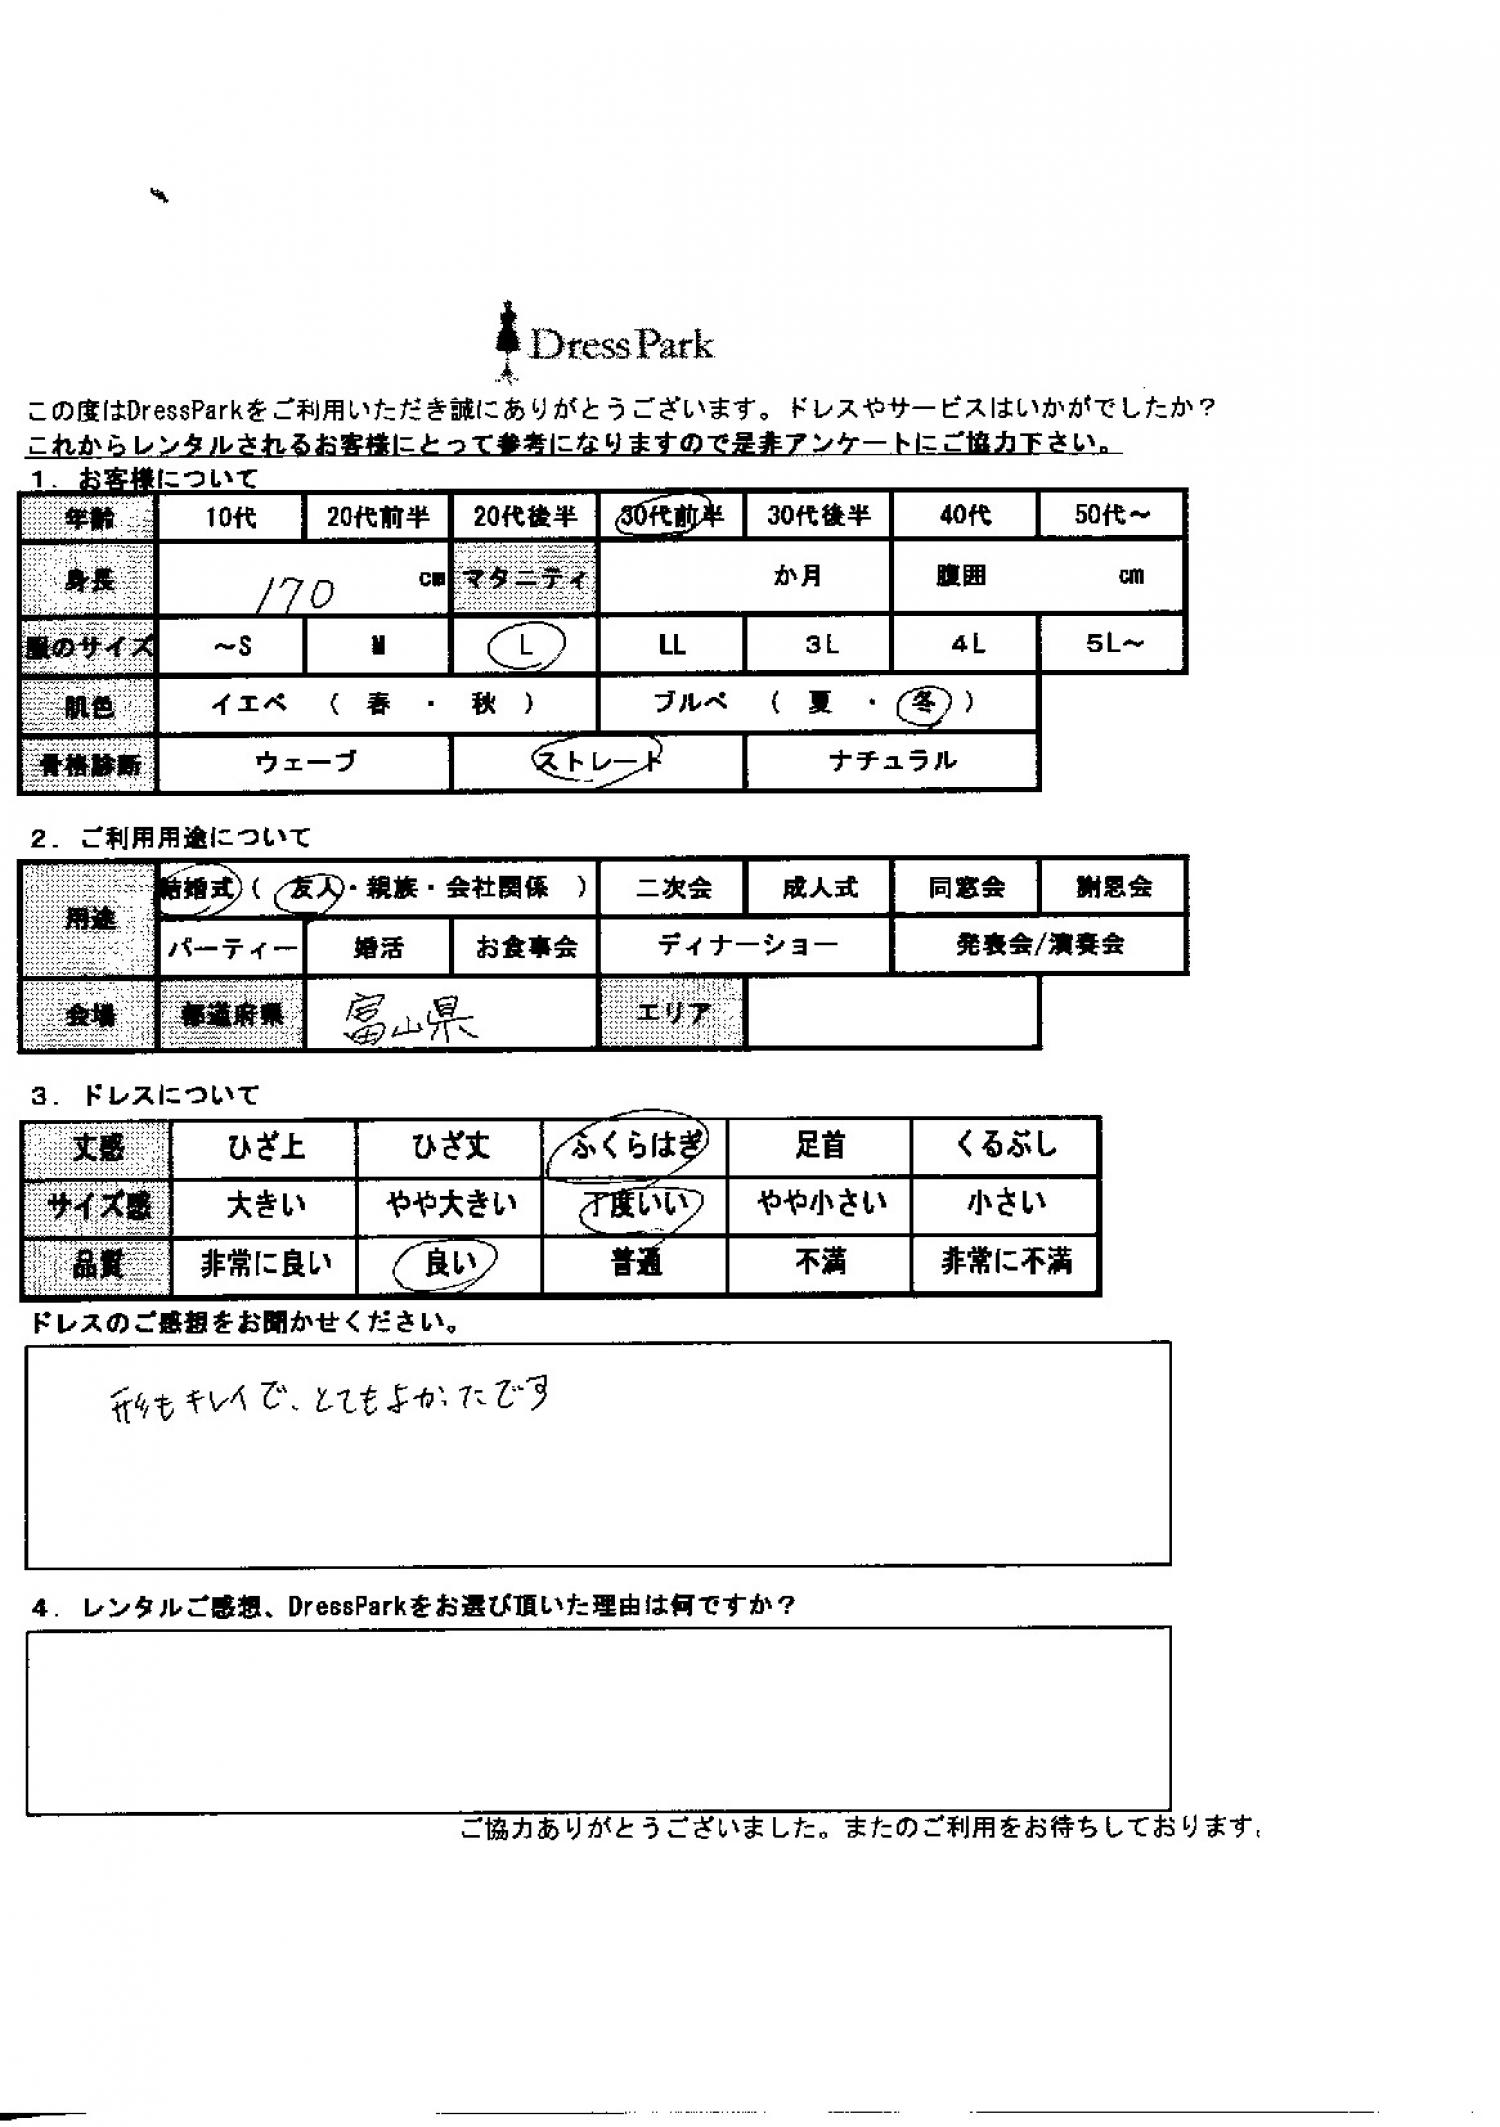 DressPark
この度はDressParkをご利用いただき誠にありがとうございます。ドレスやサービスはいかがでしたか？
これからレンタルされるお客様にとって参考になりますので是非アンケートにご協力下さい。
1. お客様について
年齢 10代 20代前半 20代後半 30代前半 30代後半 40代 50代～
身長 170 cm マタニティ か月 腹囲 cm
服のサイズ ～S M L LL 3L 4L 5L～
肌色 イエベ ( 春 ・ 秋 ) ブルベ ( 夏 ・ 冬 )
骨格診断 ウェーブ ストレート ナチュラル
2. ご利用用途について
用途 結婚式 ( 友人・親族・会社関係 ) 二次会 成人式 同窓会 謝恩会
パーティー 婚活 お食事会 ディナーショー 発表会/演奏会
会場 都道府県 富山県 エリア
3. ドレスについて
丈感 ひざ上 ひざ丈 ふくらはぎ 足首 くるぶし
サイズ感 大きい やや大きい 丁度いい やや小さい 小さい
品質 非常に良い 良い 普通 不満 非常に不満
ドレスのご感想をお聞かせください。
形もキレイで、とてもよかったです
4. レンタルご感想、DressParkをお選び頂いた理由は何ですか？
ご協力ありがとうございました。またのご利用をお待ちしております。